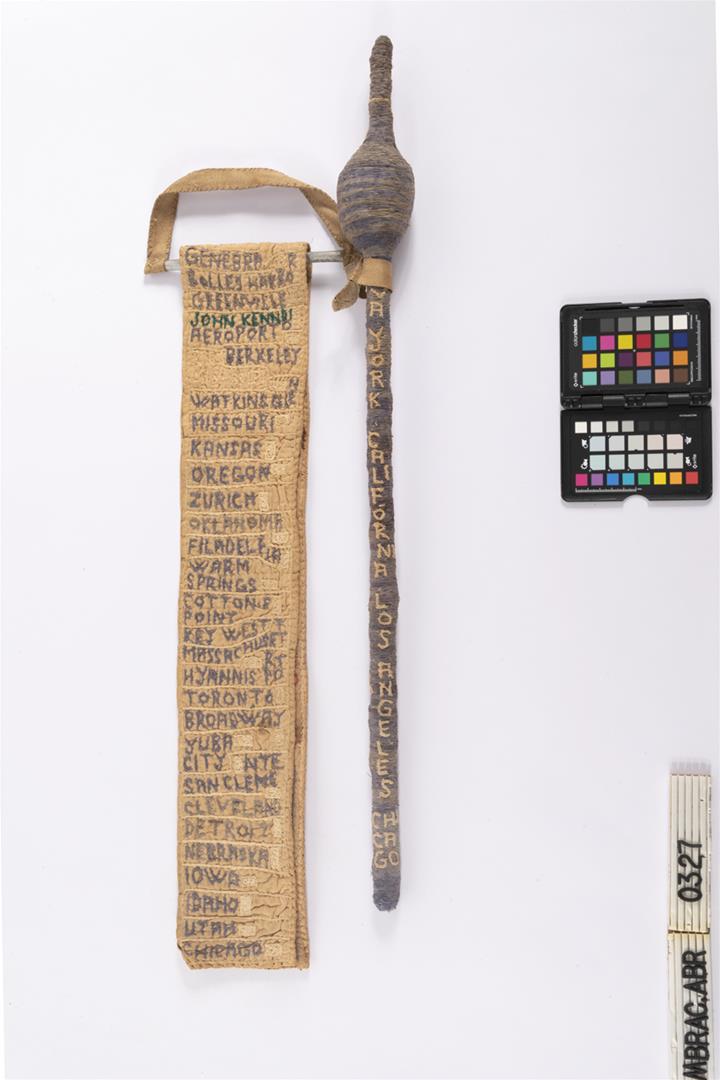 GENEBRA R
BOLLES HARBO
GREENVILLE
JOHN KENNDI
AEROPORTO
BERKELEY
WATKINSGLE
MISSOURI
KANSAS
OREGON
ZURICH
OKLAHOMA
FILADELFIA
WARM
SPRINGS
COTTONS
POINT
KEY WEST
MASSACHUSET
HYANNIS PORT
TORONTO
BROADWAY
YUBA
CITY NTE
SAN CLEME
CLEVELAND
DETROIT
NEBRASKA
IOWA
IDAHO
UTAH
CHICAGO
YA YORK CALIFÓRNIA LOS ANGELES CHICAGO
0327
MBRAC.ABR